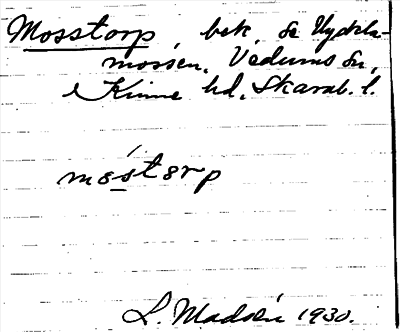 Mosstorp, bek. se Uggle-
mossen, Vedums sn,
Kinne hd, Skarab. l.
måstȯrp
L. Madsén 1930.